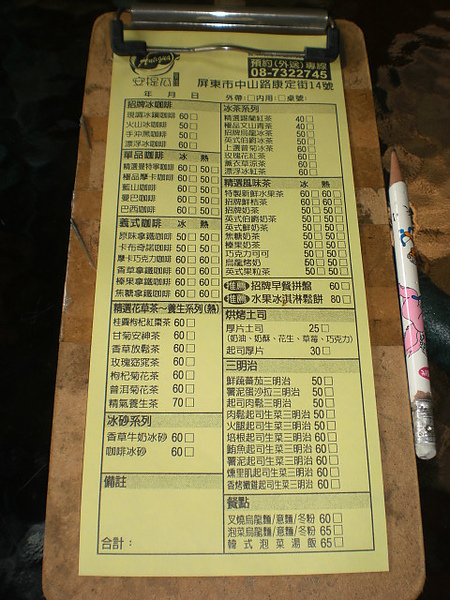 安提瓜
預約(外送)專線
08-7322745
屏東市中山路康定街14號
年 月 日 外帶:□ 內用:□ 桌號:
招牌冰咖啡
現調冰鎮咖啡 60□
火山冰咖啡 50□
手沖黑咖啡 50□
漂浮冰咖啡 60□
單品咖啡 冰 熱
精選曼特寧咖啡 60□ 50□
極品摩卡咖啡 60□ 50□
藍山咖啡 60□ 50□
曼巴咖啡 60□ 50□
巴西咖啡 60□ 50□
義式咖啡 冰 熱
原味拿鐵咖啡 50□ 50□
卡布奇諾咖啡 50□ 50□
摩卡巧克力咖啡 60□ 60□
香草拿鐵咖啡 60□ 60□
榛果拿鐵咖啡 60□ 60□
焦糖拿鐵咖啡 60□ 60□
精選花草茶~養生系列(熱)
桂圓枸杞紅棗茶 60□
甘菊安神茶 60□
香草放鬆茶 60□
玫瑰窈窕茶 60□
枸杞菊花茶 60□
普洱菊花茶 60□
精氣養生茶 70□
冰砂系列
香草牛奶冰砂 60□
咖啡冰砂 60□
備註
合計:
冰茶系列
精選錫蘭紅茶 40□
極品文山青茶 40□
招牌烏龍冰茶 50□
英式伯爵冰茶 50□
上選普菊冰茶 60□
玫瑰花紅茶 60□
薰衣草涼茶 60□
漂浮冰紅茶 60□
精選風味茶 冰 熱
特製新鮮水果茶 60□ 60□
招牌鮮桔茶 60□ 60□
招牌奶茶 50□ 50□
英式伯爵奶茶 50□ 50□
英式鮮奶茶 50□ 50□
焦糖奶茶 50□ 50□
榛果奶茶 50□ 50□
巧克力可可 50□ 50□
烏龍烤奶 50□ 50□
英式果粒茶 50□ 50□
推薦 招牌早餐拼盤 60□
推薦 水果冰淇淋鬆餅 80□
烘烤土司
厚片土司 25□
(奶油、奶酥、花生、草莓、巧克力)
起司厚片 30□
三明治
鮮蔬蕃茄三明治 50□
薯泥蛋沙拉三明治 50□
起司肉鬆三明治 50□
肉鬆起司生菜三明治 50□
火腿起司生菜三明治 50□
培根起司生菜三明治 60□
鮪魚起司生菜三明治 60□
薯泥起司生菜三明治 60□
燻里肌起司生菜三明治 60□
香烤嫩雞起司生菜三明治 60□
餐點
叉燒烏龍麵/意麵/冬粉 60□
泡菜烏龍麵/意麵/冬粉 65□
韓式泡菜湯飯 65□